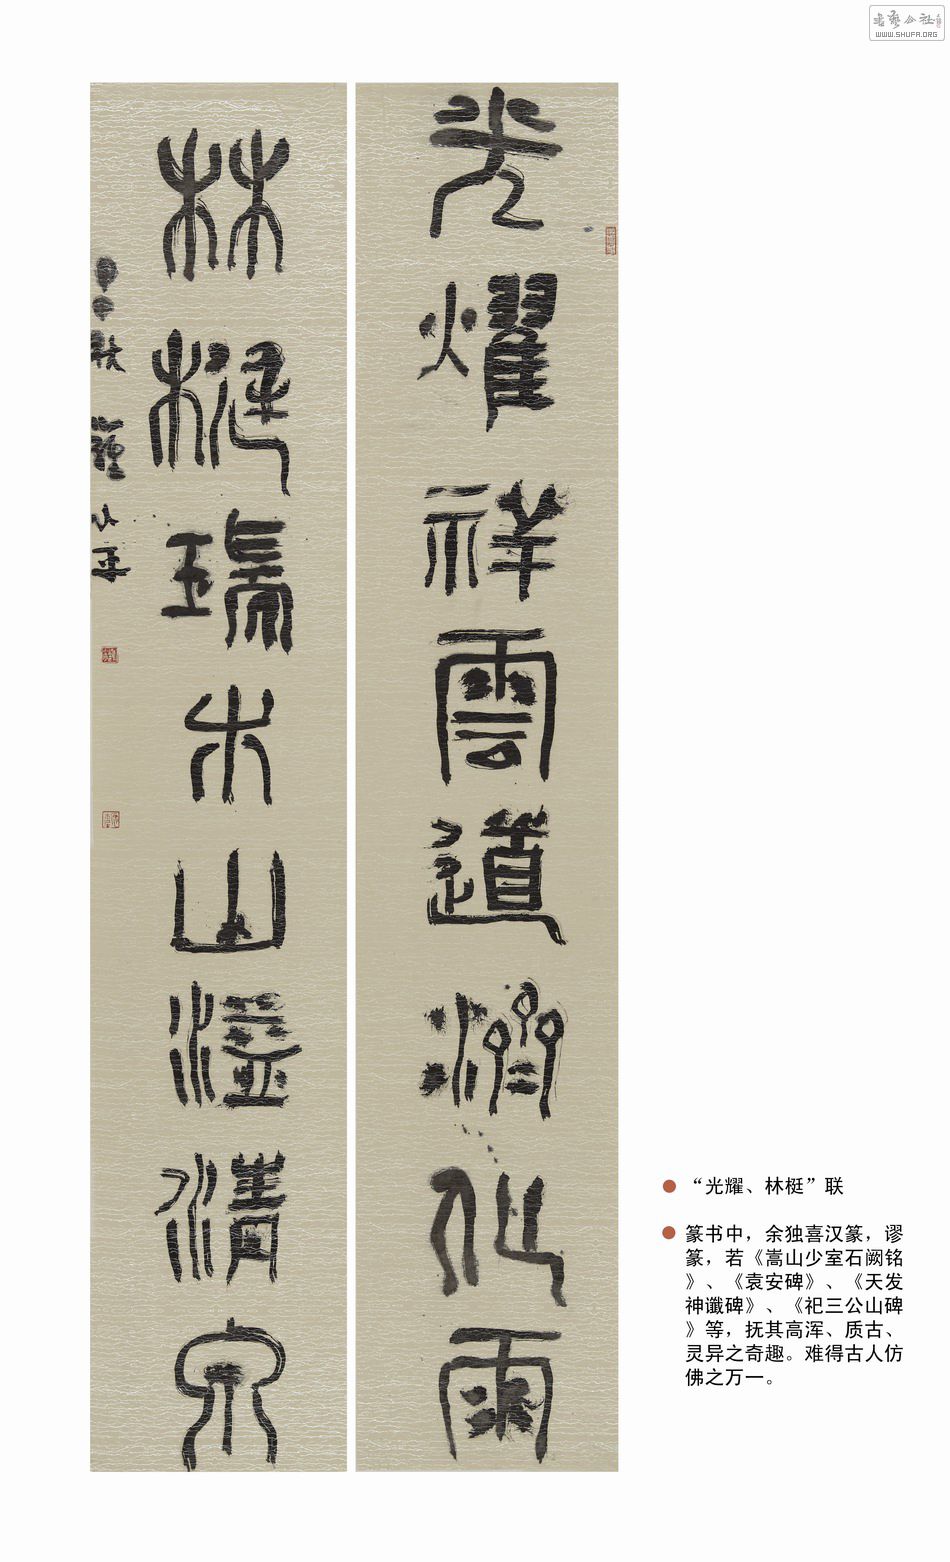 书艺公社
WWW.SHUFA.ORG
光耀祥雲道濟仙雨
林梃瑞木山溢清泉
秋
“光耀、林梃”联
篆书中，余独喜汉篆，谬
篆，若《嵩山少室石阙铭
》、《袁安碑》、《天发
神谶碑》、《祀三公山碑
》等，抚其高浑、质古、
灵异之奇趣。难得古人仿
佛之万一。